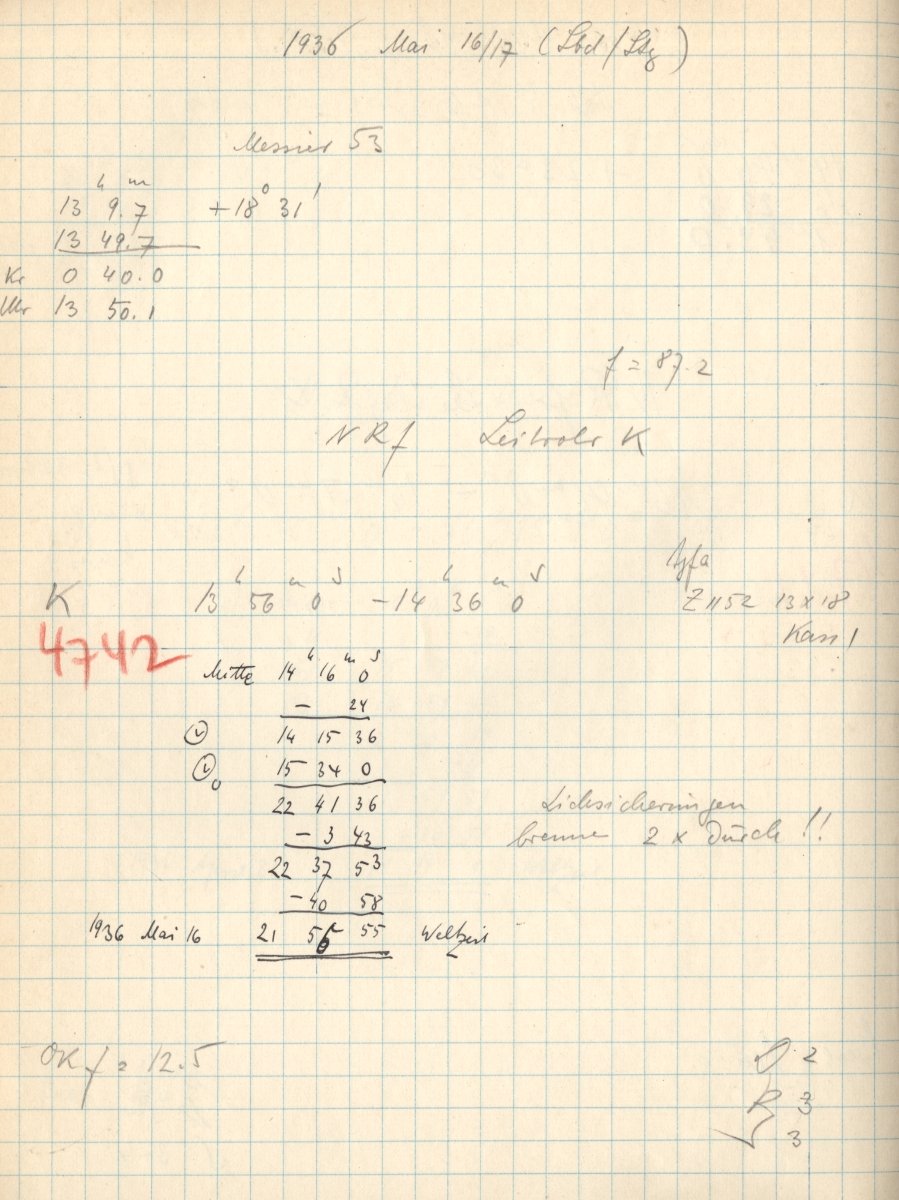 1936 Mai 16/17 (Sbd/Stg)
Messier 53
h m
13 9.7 +18° 31'
13 49.7
Kr 0 40.0
Uhr 13 50.1
f = 87.2
N R f Leitrohr K
Agfa
K 13h 56m 0s - 14h 36m 0s Z 1152 13 x 18
Kass 1
4742
Mitte 14h 16m 0s
- 24
14 15 36
15 34 0
22 41 36
- 3 43
22 37 53
- 40 58
1936 Mai 16 21 56 55 Weltzeit
Lichsicherungen
brennen 2 x durch !!
OK f = 12.5
D 2
R 3
3